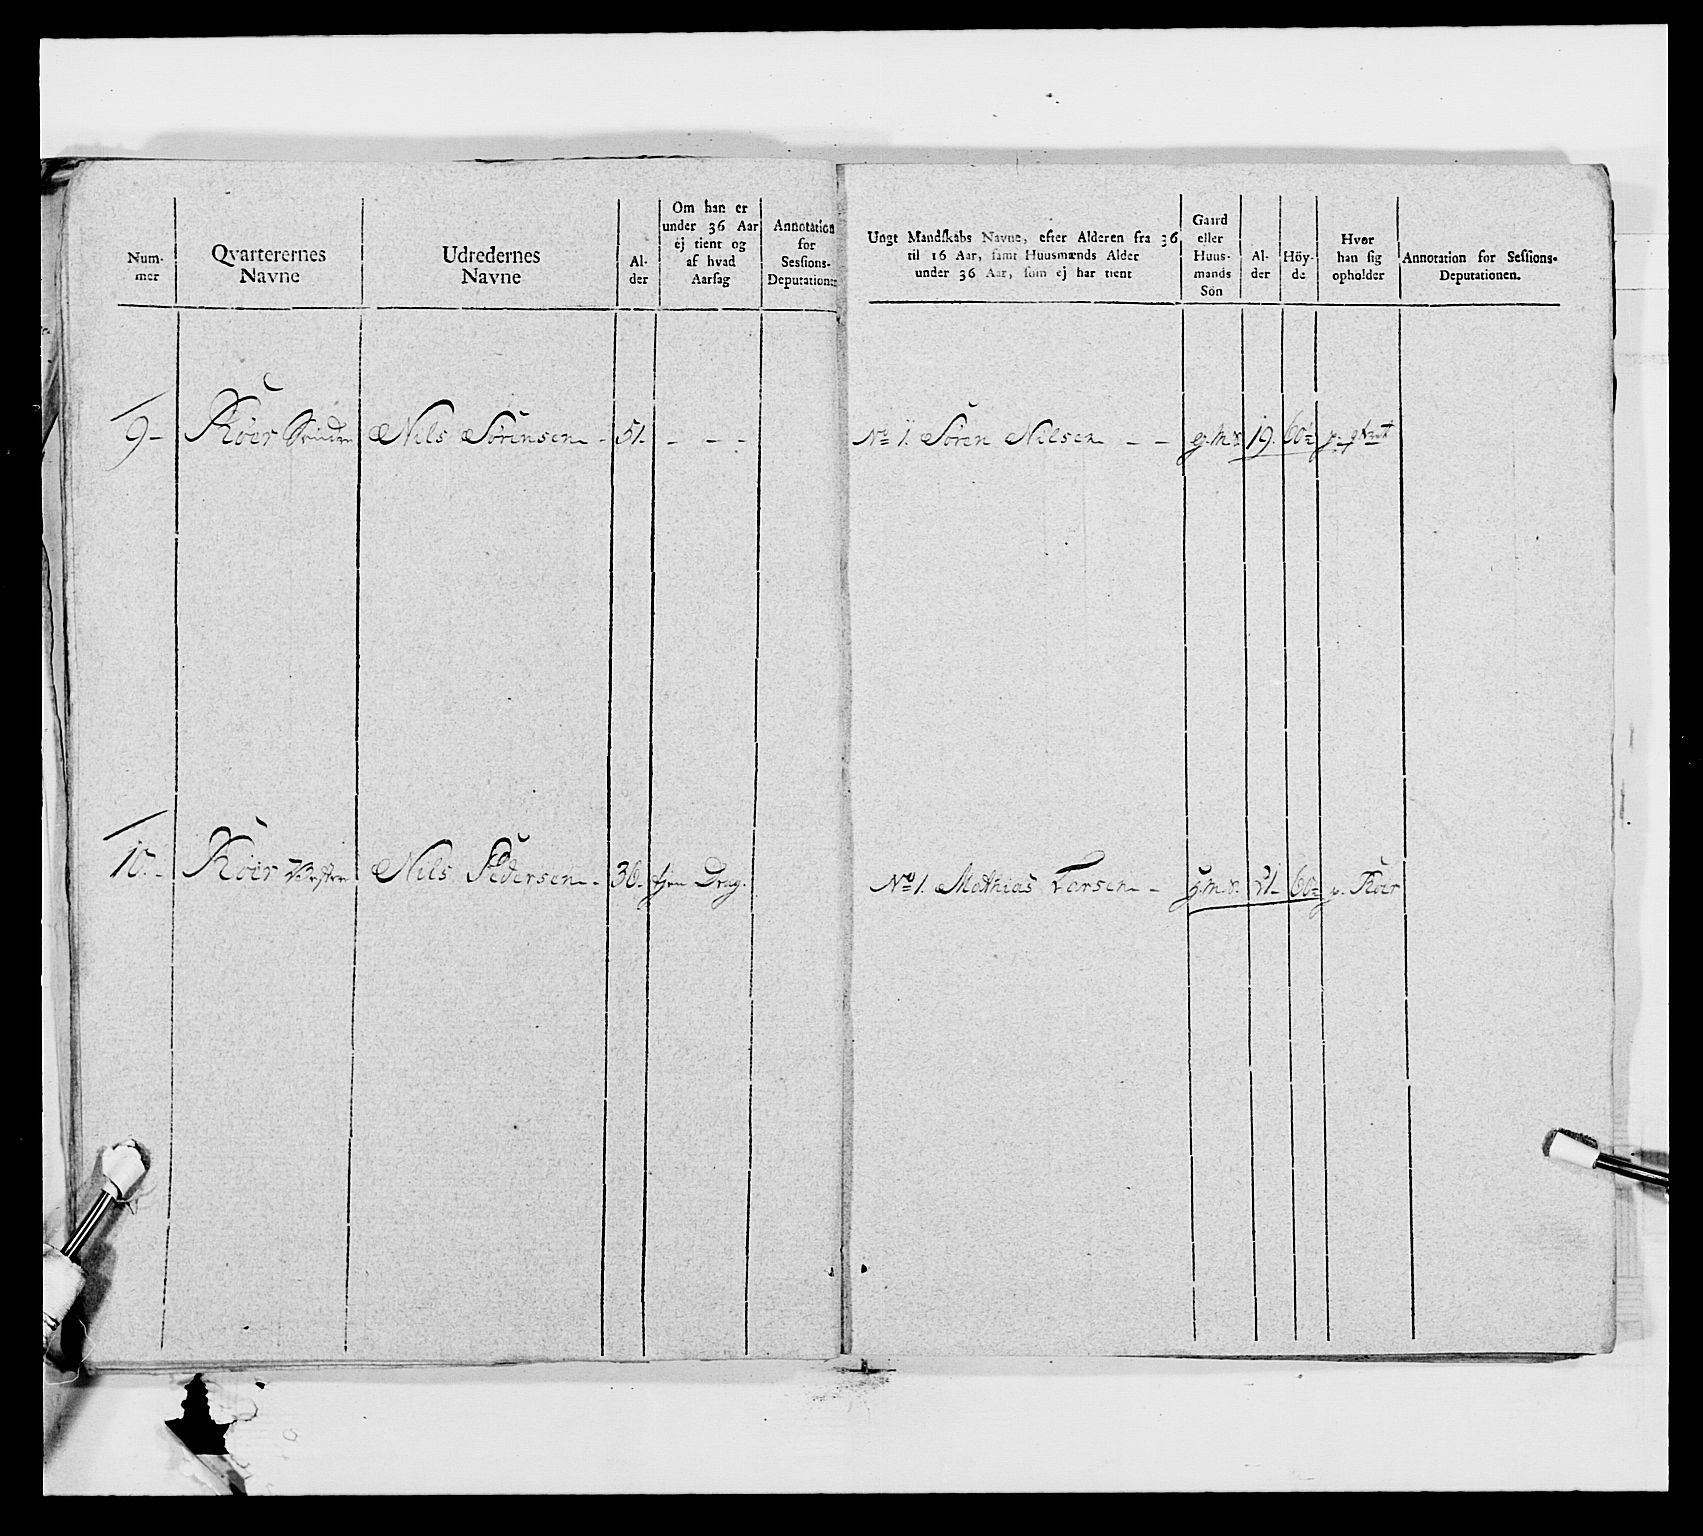 Num-
mer
Qvarterernes
Navne
Udredernes
Navne
Al-
der
Om han er
under 36 Aar
ej tient og
af hvad
Aarsag
Annotation
for
Sessions-
Deputationen
9-
Röer
Nils Sörensen -
51.
- - -
10.-
Röer Vestre
Nils Pedersen -
36.
tjen Drag.
Ungt Mandskabs Navne, efter Alderen fra 36
til 16 Aar, samt Huusmænds Alder
under 36 Aar, som ej har tient
Gaard
eller
Huus-
mands
Sön
Al-
der
Höy-
de
Hvor
han sig
opholder
Annotation for Sessions-
Deputationen.
No 1. Sören Nilsen - -
g.m.s.
19.
No 1. Mathias Larsen -
g.m.s.
21.
p. Röer